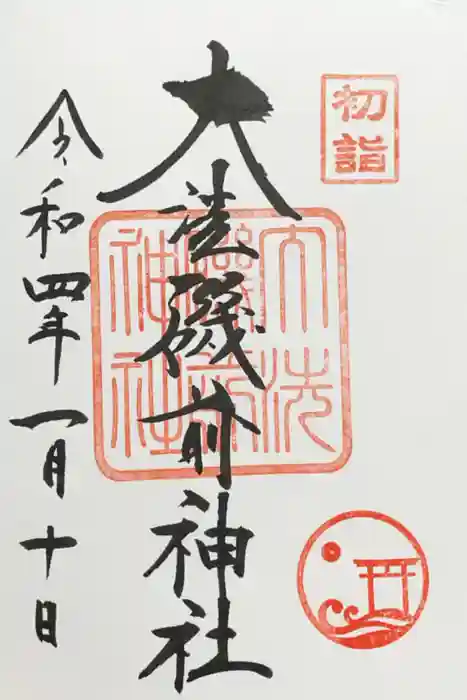 初詣
大洗磯前神社
大洗磯前神社
令和四年一月十日